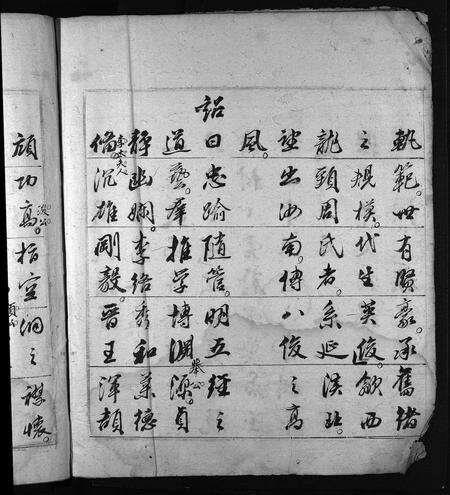 軌範。世有賢豪。承舊緒
之規模。代生英俊。歙西
龍頭周氏者。系延漢廷。
望出汝南。傳八俊之高
風。
詔曰忠踰隨管。明五經之
道藝。群推学博淵源。貞
靜幽嫻。李絡秀和柔德
備。沉雄剛毅。晋王渾
顔功高。指空洞之謀懷。